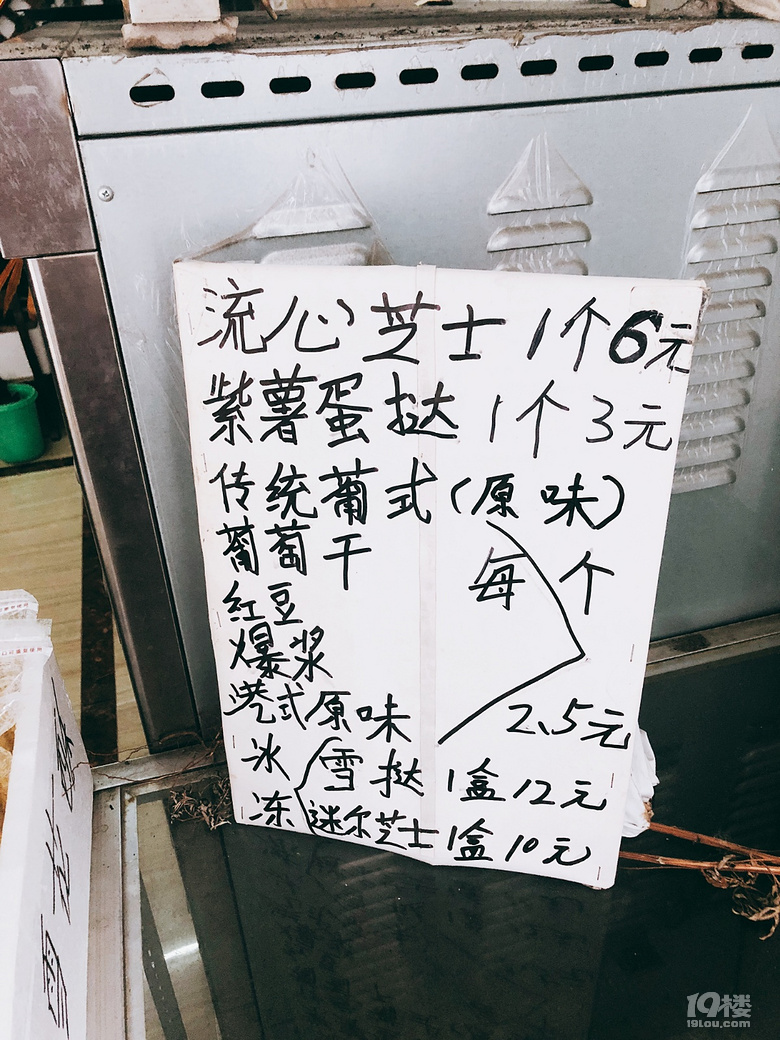 流心芝士 1个6元
紫薯蛋挞 1个 3元
传统葡式(原味)
葡萄干
每个
红豆
爆浆
港式原味
2.5元
冰冻
雪挞 1盒12元
迷尔芝士 1盒10元
19楼
19lou.com